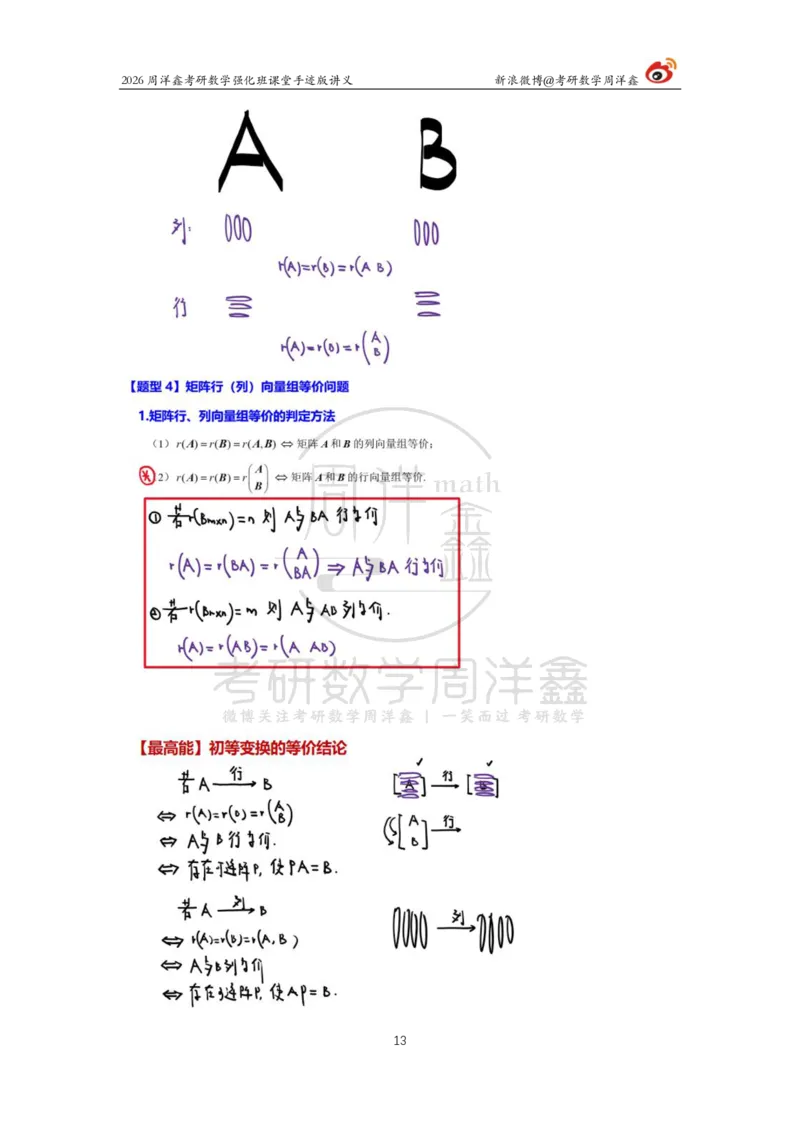 2026 周洋鑫考研数学强化班课堂手迹版讲义 新浪微博@考研数学周洋鑫
A B
列:
r(A)=r(B)=r(A B)
行
r(A)=r(B)=r(A B)
【题型 4】矩阵行（列）向量组等价问题
1.矩阵行、列向量组等价的判定方法
（1）r(A)=r(B)=r(A,B) ⇔ 矩阵 A 和 B 的列向量组等价；
2）r(A)=r(B)=r(A B) ⇔ 矩阵 A 和 B 的行向量组等价.
① 若r(Bm×n)=n 则 A与BA 行等价
r(A)=r(BA)=r(A BA) ⇒ A与BA 行等价
② 若r(Bm×n)=m 则 A与AB 列等价.
r(A)=r(AB)=r(A AB)
周洋鑫 math
考研数学周洋鑫
微博关注考研数学周洋鑫 | 一笑而过 考研数学
【最高能】初等变换的等价结论
若 A 行→ B
[A] 行→ [B]
⇔ r(A)=r(B)=r(A B)
[A B] 行→
⇔ A与B行等价.
⇔ 存在可逆阵P, 使PA=B.
若 A 列→ B
列→
⇔ r(A)=r(B)=r(A,B)
⇔ A与B列等价
⇔ 存在可逆阵P, 使AP=B.
13